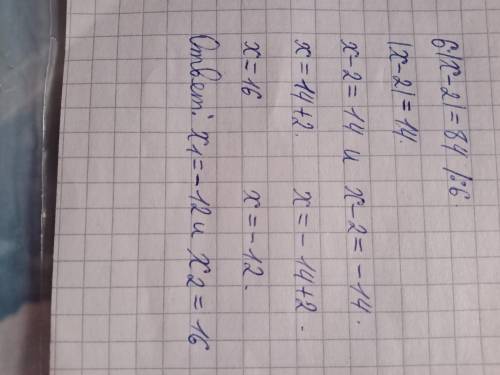 6|x-2|=84 |:6
|x-2|=14.
x-2=14 и x-2=-14.
x=14+2. x=-14+2.
x=16 x=-12.
Ответ: x1=-12 и x2=16